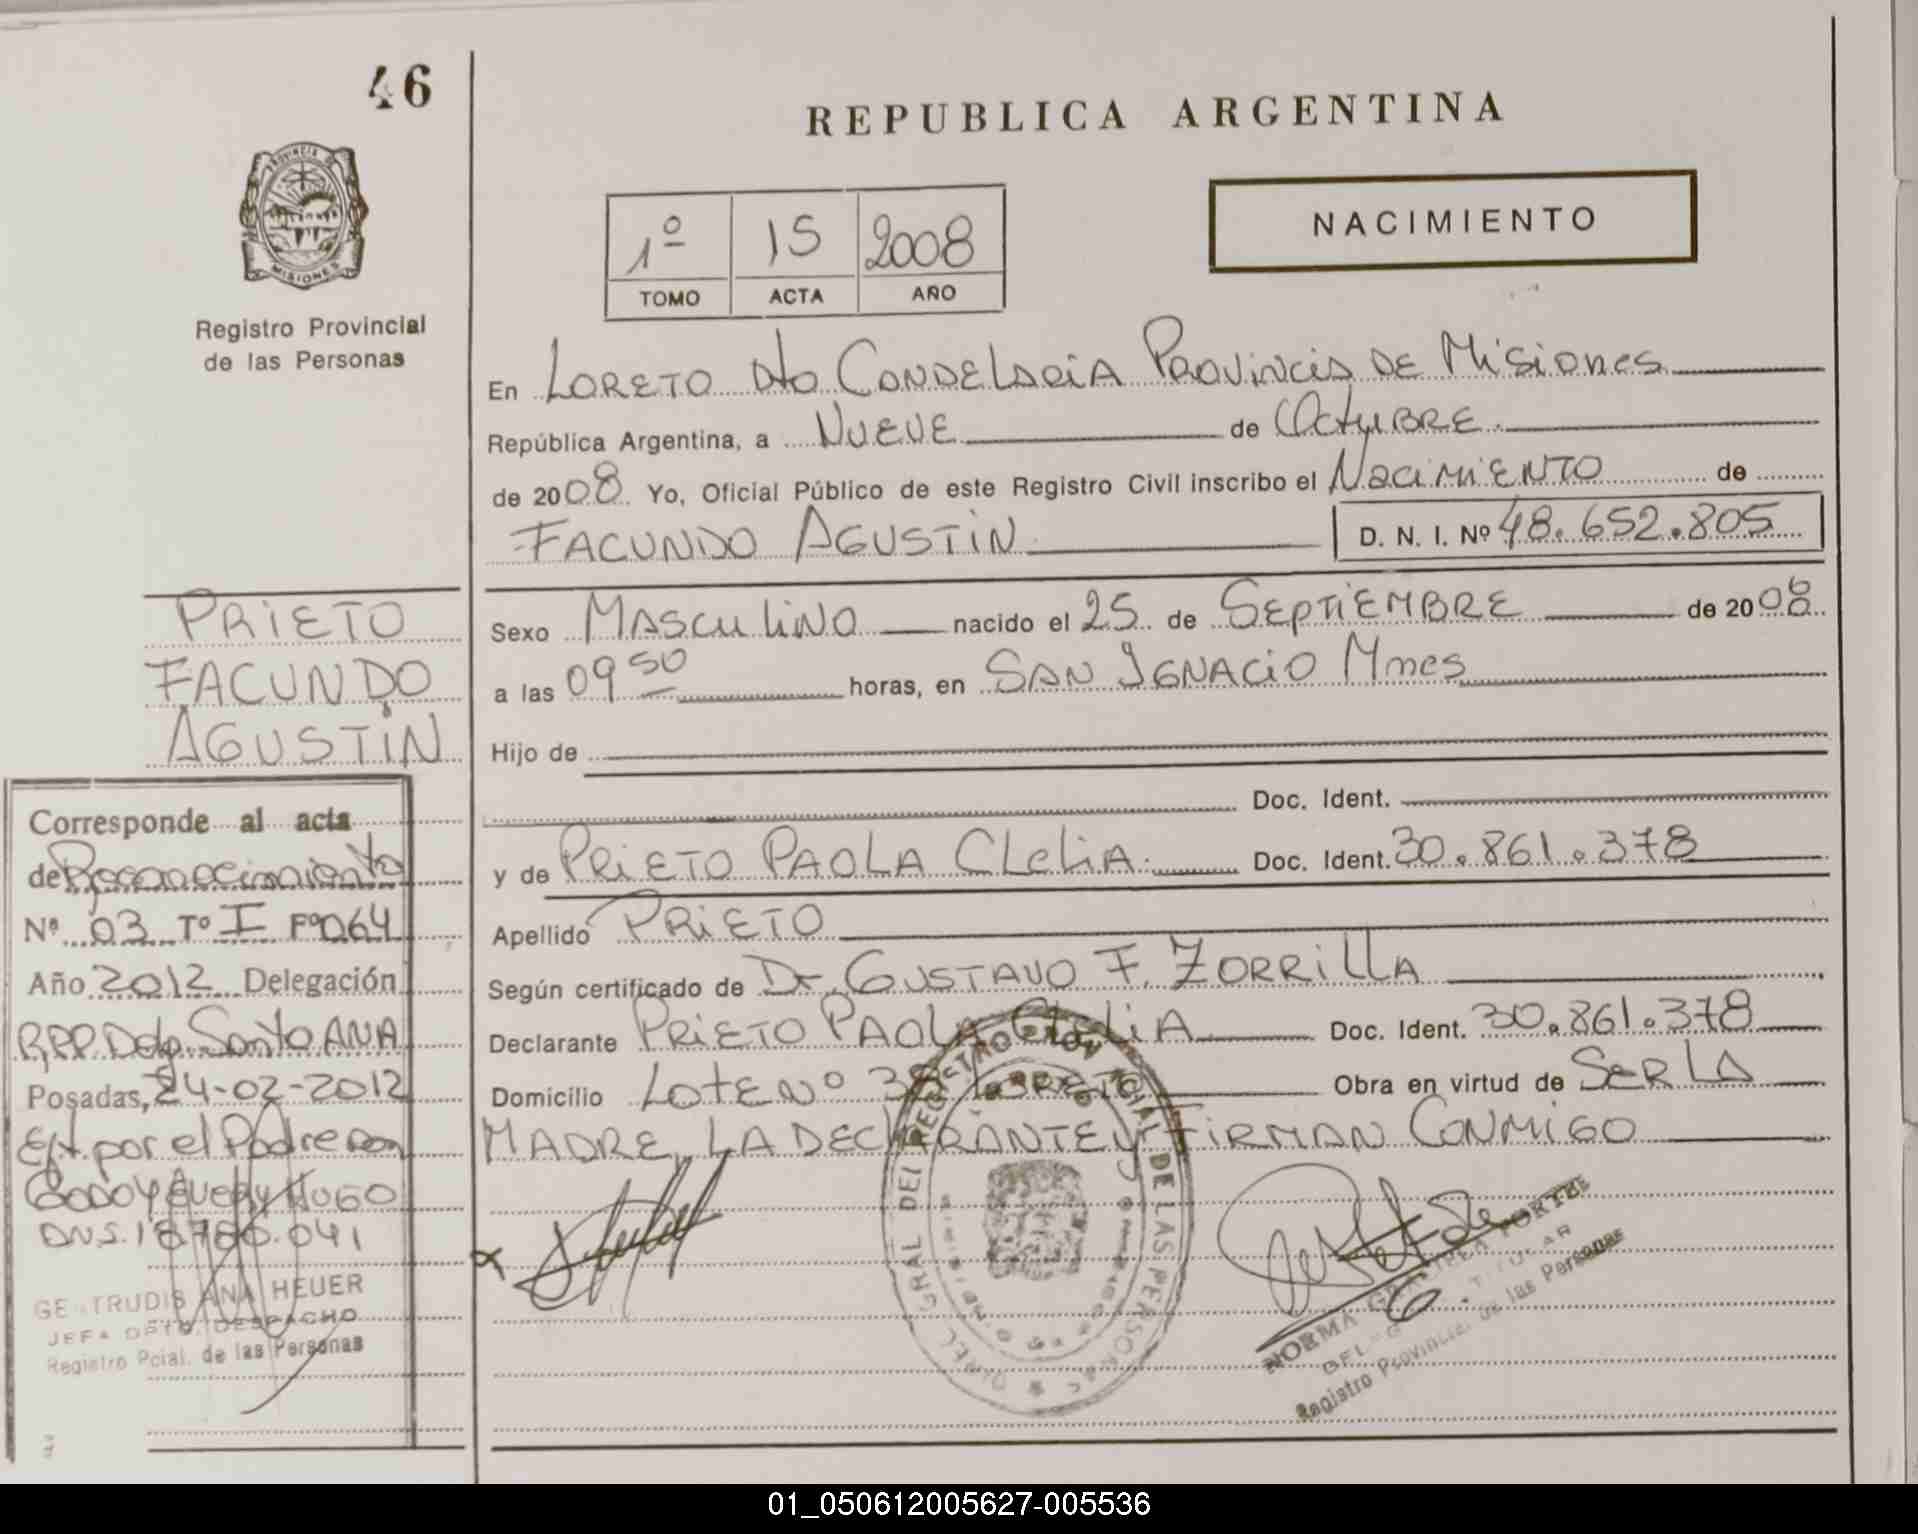 46
REPUBLICA ARGENTINA
PROVINCIA DE
MISIONES
Registro Provincial
de las Personas
1º 15 2008
TOMO ACTA AÑO
NACIMIENTO
En LORETO Dto CANDELARIA PROVINCIA DE MISIONES
República Argentina, a NUEVE de OCTUBRE
de 2008 Yo, Oficial Público de este Registro Civil inscribo el NACIMIENTO de
FACUNDO AGUSTIN D. N. I. Nº 48.652.805
Sexo MASCULINO nacido el 25 de SEPTIEMBRE de 2008
a las 09 50 horas, en SAN IGNACIO Mnes
Hijo de
Doc. Ident.
y de PRIETO PAOLA CLELIA Doc. Ident. 30.861.378
Apellido PRIETO
Según certificado de Dr GUSTAVO F. ZORRILLA
Declarante PRIETO PAOLA CLELIA Doc. Ident. 30.861.378
Domicilio LOTE Nº 38 LORETO Obra en virtud de SER LA
MADRE, LA DECLARANTE y FIRMAN CONMIGO
PRIETO
FACUNDO
AGUSTIN
Corresponde al acta
de Reconocimiento
Nº 03 Tº I Fº 064
Año 2012 Delegación
R.P.P. Deleg. Santa ANA
Posadas, 24-02-2012
Ef. por el Padre Don
GODOY Hugo
DNI. 18.780.041
GERTRUDIS ANA HEUER
JEFA DPTO. DESPACHO
Registro Pcial. de las Personas
NORMA GRACIELA
TITULAR
Registro Provincial de las Personas
01_050612005627-005536